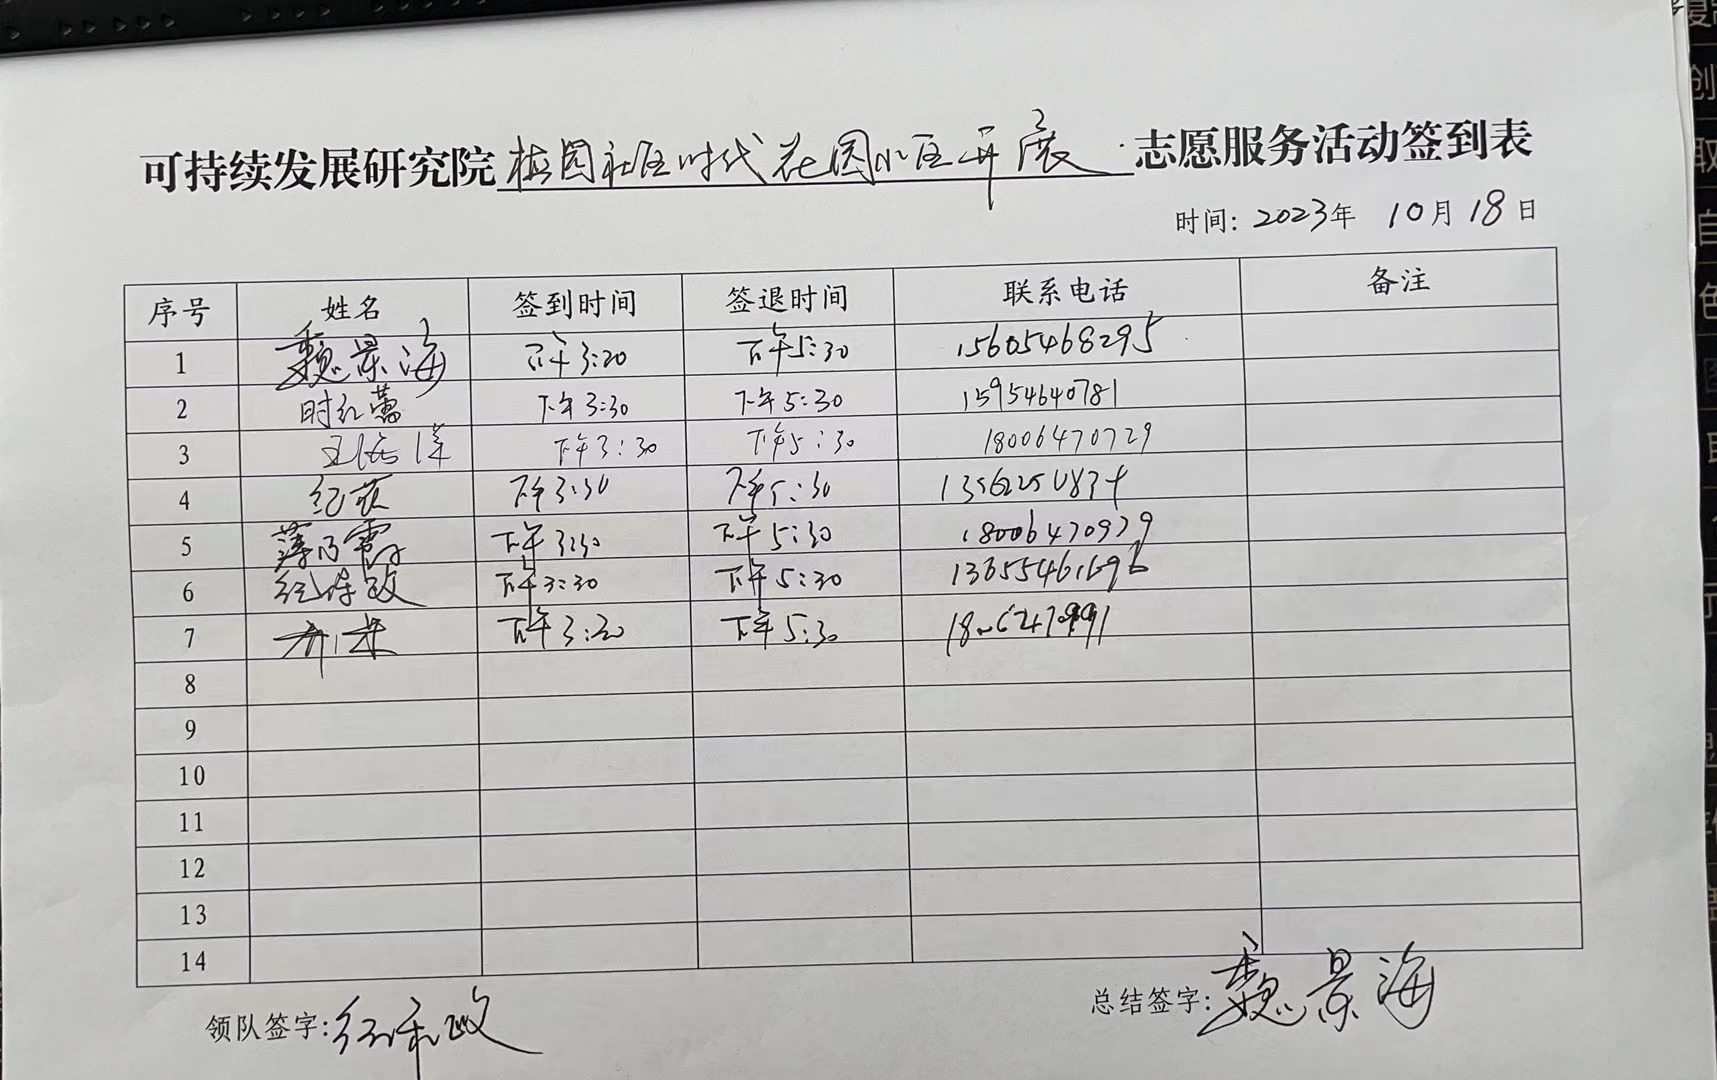 可持续发展研究院梅园社区时代花园小区开展志愿服务活动签到表
时间: 2023年 10月18日
序号 姓名 签到时间 签退时间 联系电话 备注
1 魏景海 下午3:20 下午5:30 15605468295
2 时红蕾 下午3:30 下午5:30 15954640781
3 下午3:30 下午5:30 18006470729
4 下午3:30 下午5:30
5 薄乃霞 下午3:30 下午5:30 18006470979
6 下午3:30 下午5:30
7 下午3:30 下午5:30
8
9
10
11
12
13
14
领队签字:
总结签字: 魏景海